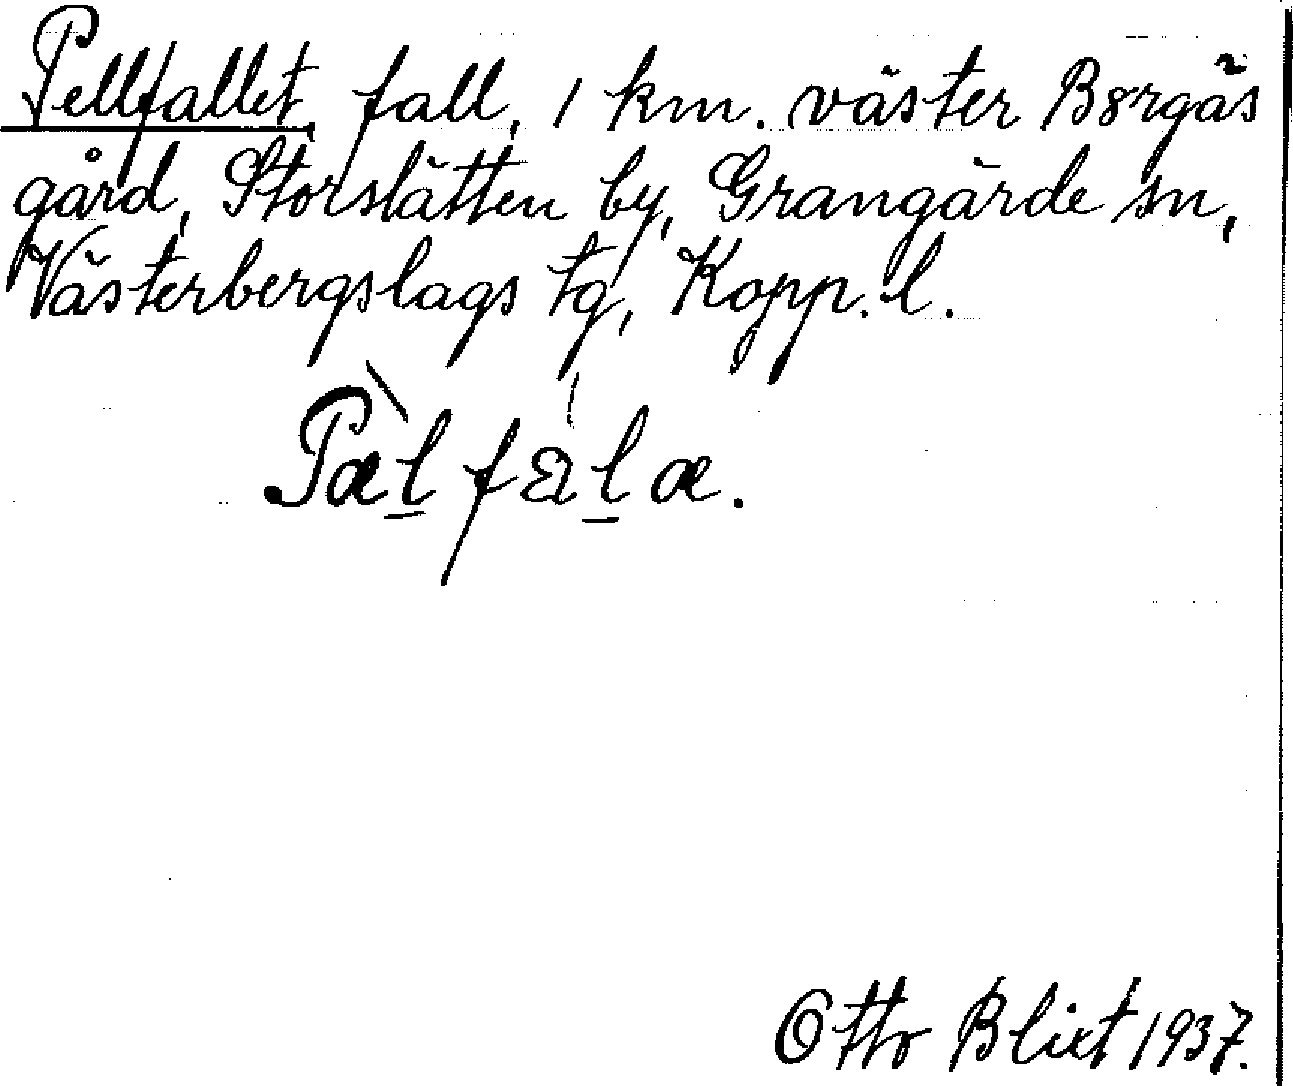 Pellfallet, fall, 1 km. väster Borgås
gård, Storslätten by, Grangärde sn,
Västerbergslags tg, Kopp. l.
Otto Blixt 1937.